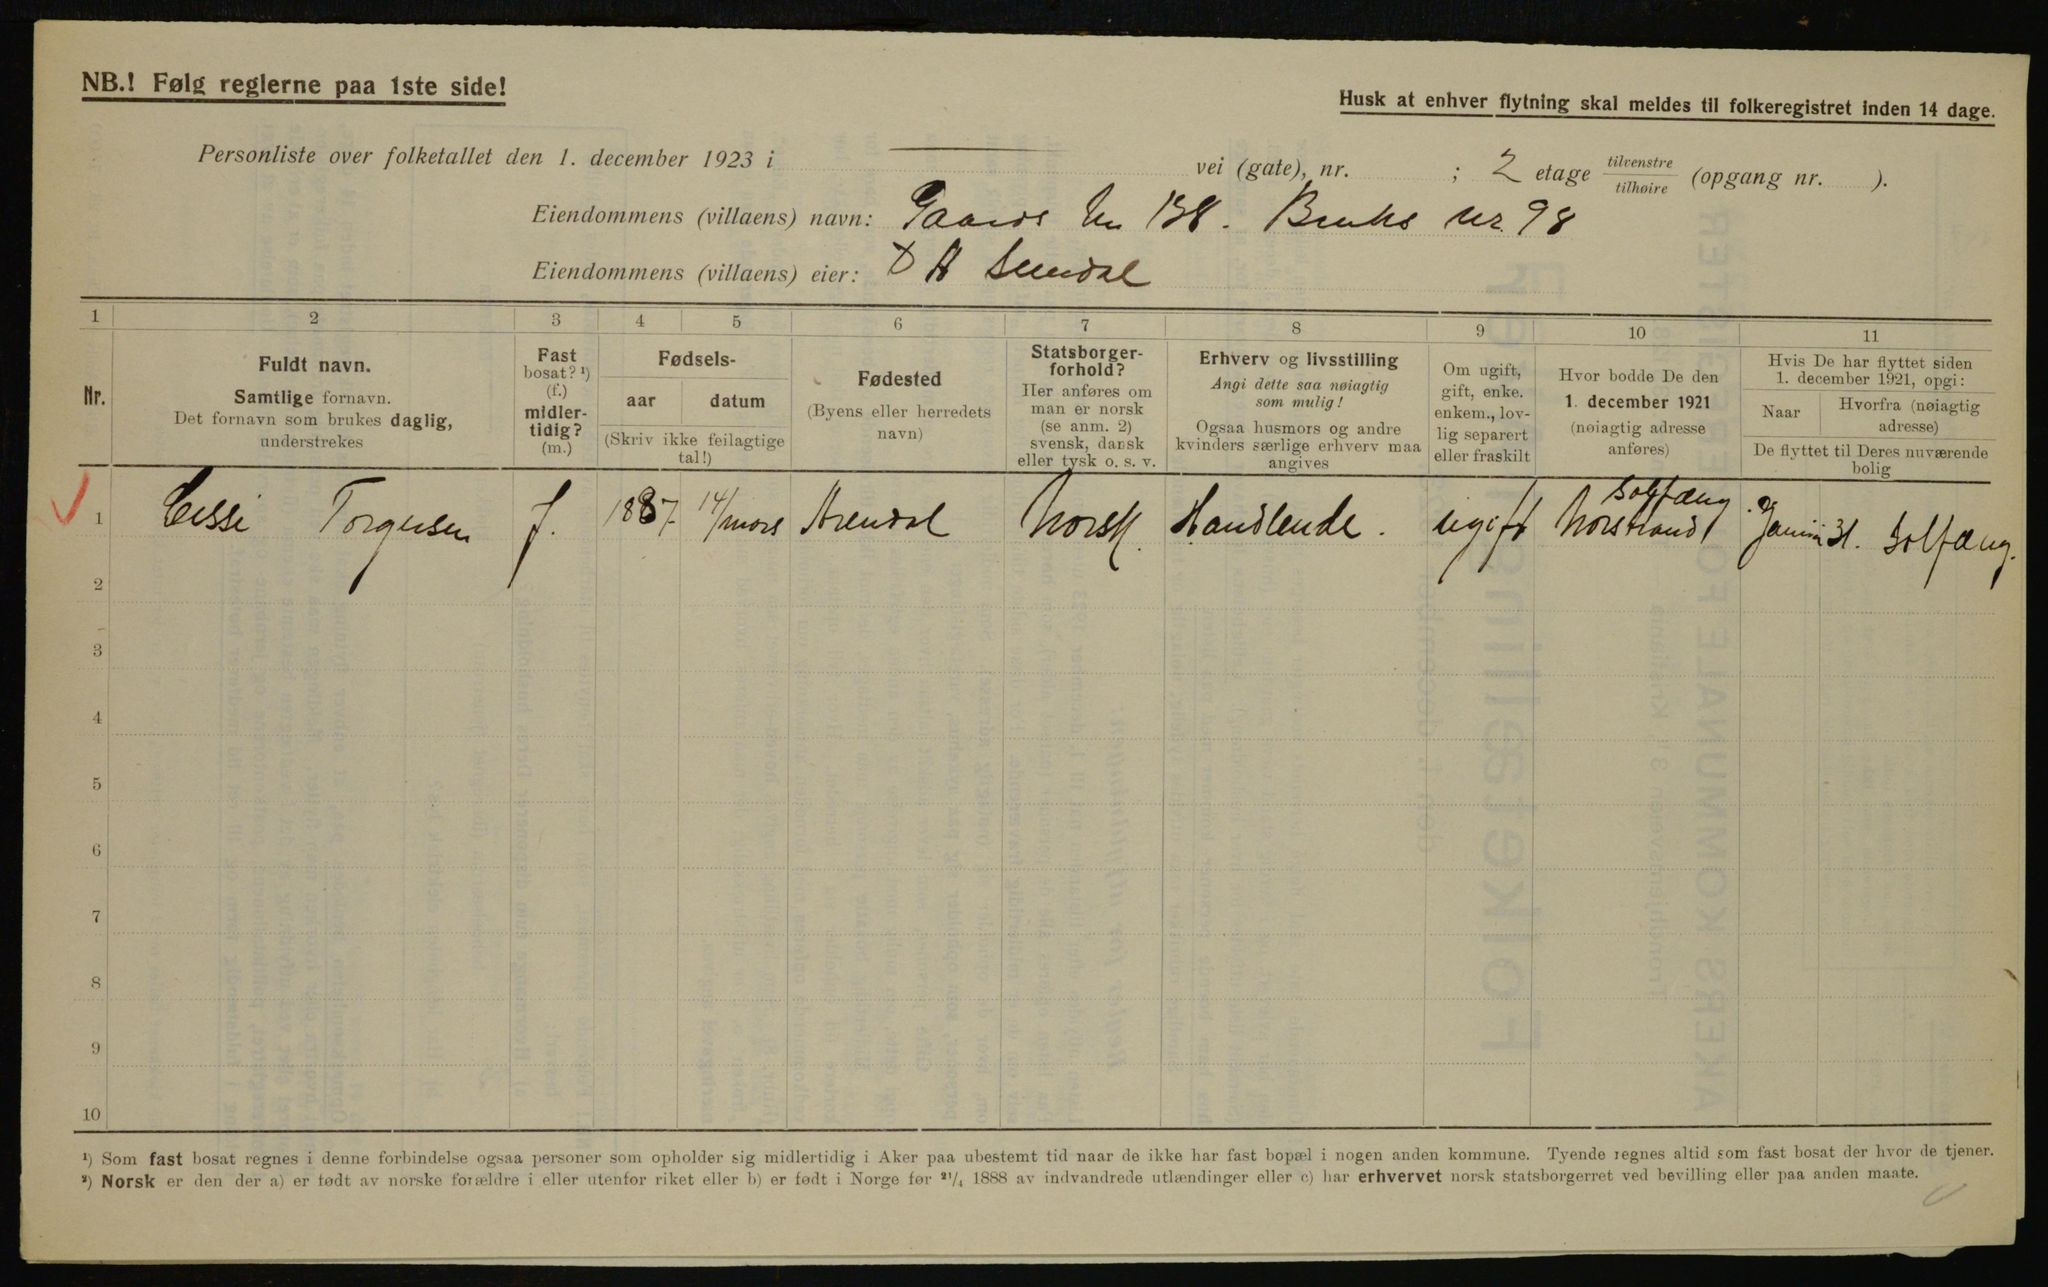 NB.! Følg reglerne paa 1ste side!
Husk at enhver flytning skal meldes til folkeregistret inden 14 dage.
Personliste over folketallet den 1. december 1923 i vei (gate), nr. ; 2 etage tilvenstre/tilhøire (opgang nr. ).
Eiendommens (villaens) navn: Gaards Nr 138. Bruks Nr. 98
Eiendommens (villaens) eier: A Sundal
1 2 3 4 5 6 7 8 9 10 11
Nr.
Fuldt navn.
Samtlige fornavn.
Det fornavn som brukes daglig,
understrekes
Fast
bosat? ¹)
(f.)
midler-
tidig?
(m.)
Fødsels-
aar datum
(Skriv ikke feilagtige
tal!)
Fødested
(Byens eller herredets
navn)
Statsborger-
forhold?
Her anføres om
man er norsk
(se anm. 2)
svensk, dansk
eller tysk o. s. v.
Erhverv og livsstilling
Angi dette saa nøiagtig
som mulig!
Ogsaa husmors og andre
kvinders særlige erhverv maa
angives
Om ugift,
gift, enke.
enkem., lov-
lig separert
eller fraskilt
Hvor bodde De den
1. december 1921
(nøiagtig adresse
anføres)
Hvis De har flyttet siden
1. december 1921, opgi:
Naar
Hvorfra (nøiagtig
adresse)
De flyttet til Deres nuværende
bolig
1 Cissi Torgersen f. 1887. 14/mars Arendal Norsk. Handlende. ugift Solfæng Norstrand. 31. Solfæng.
2
3
4
5
6
7
8
9
10
¹) Som fast bosat regnes i denne forbindelse ogsaa personer som opholder sig midlertidig i Aker paa ubestemt tid naar de ikke har fast bopæl i nogen anden kommune. Tyende regnes altid som fast bosat der hvor de tjener.
²) Norsk er den der a) er født av norske forældre i eller utenfor riket eller b) er født i Norge før ²¹/₄ 1888 av indvandrede utlændinger eller c) har erhvervet norsk statsborgerret ved bevilling eller paa anden maate.